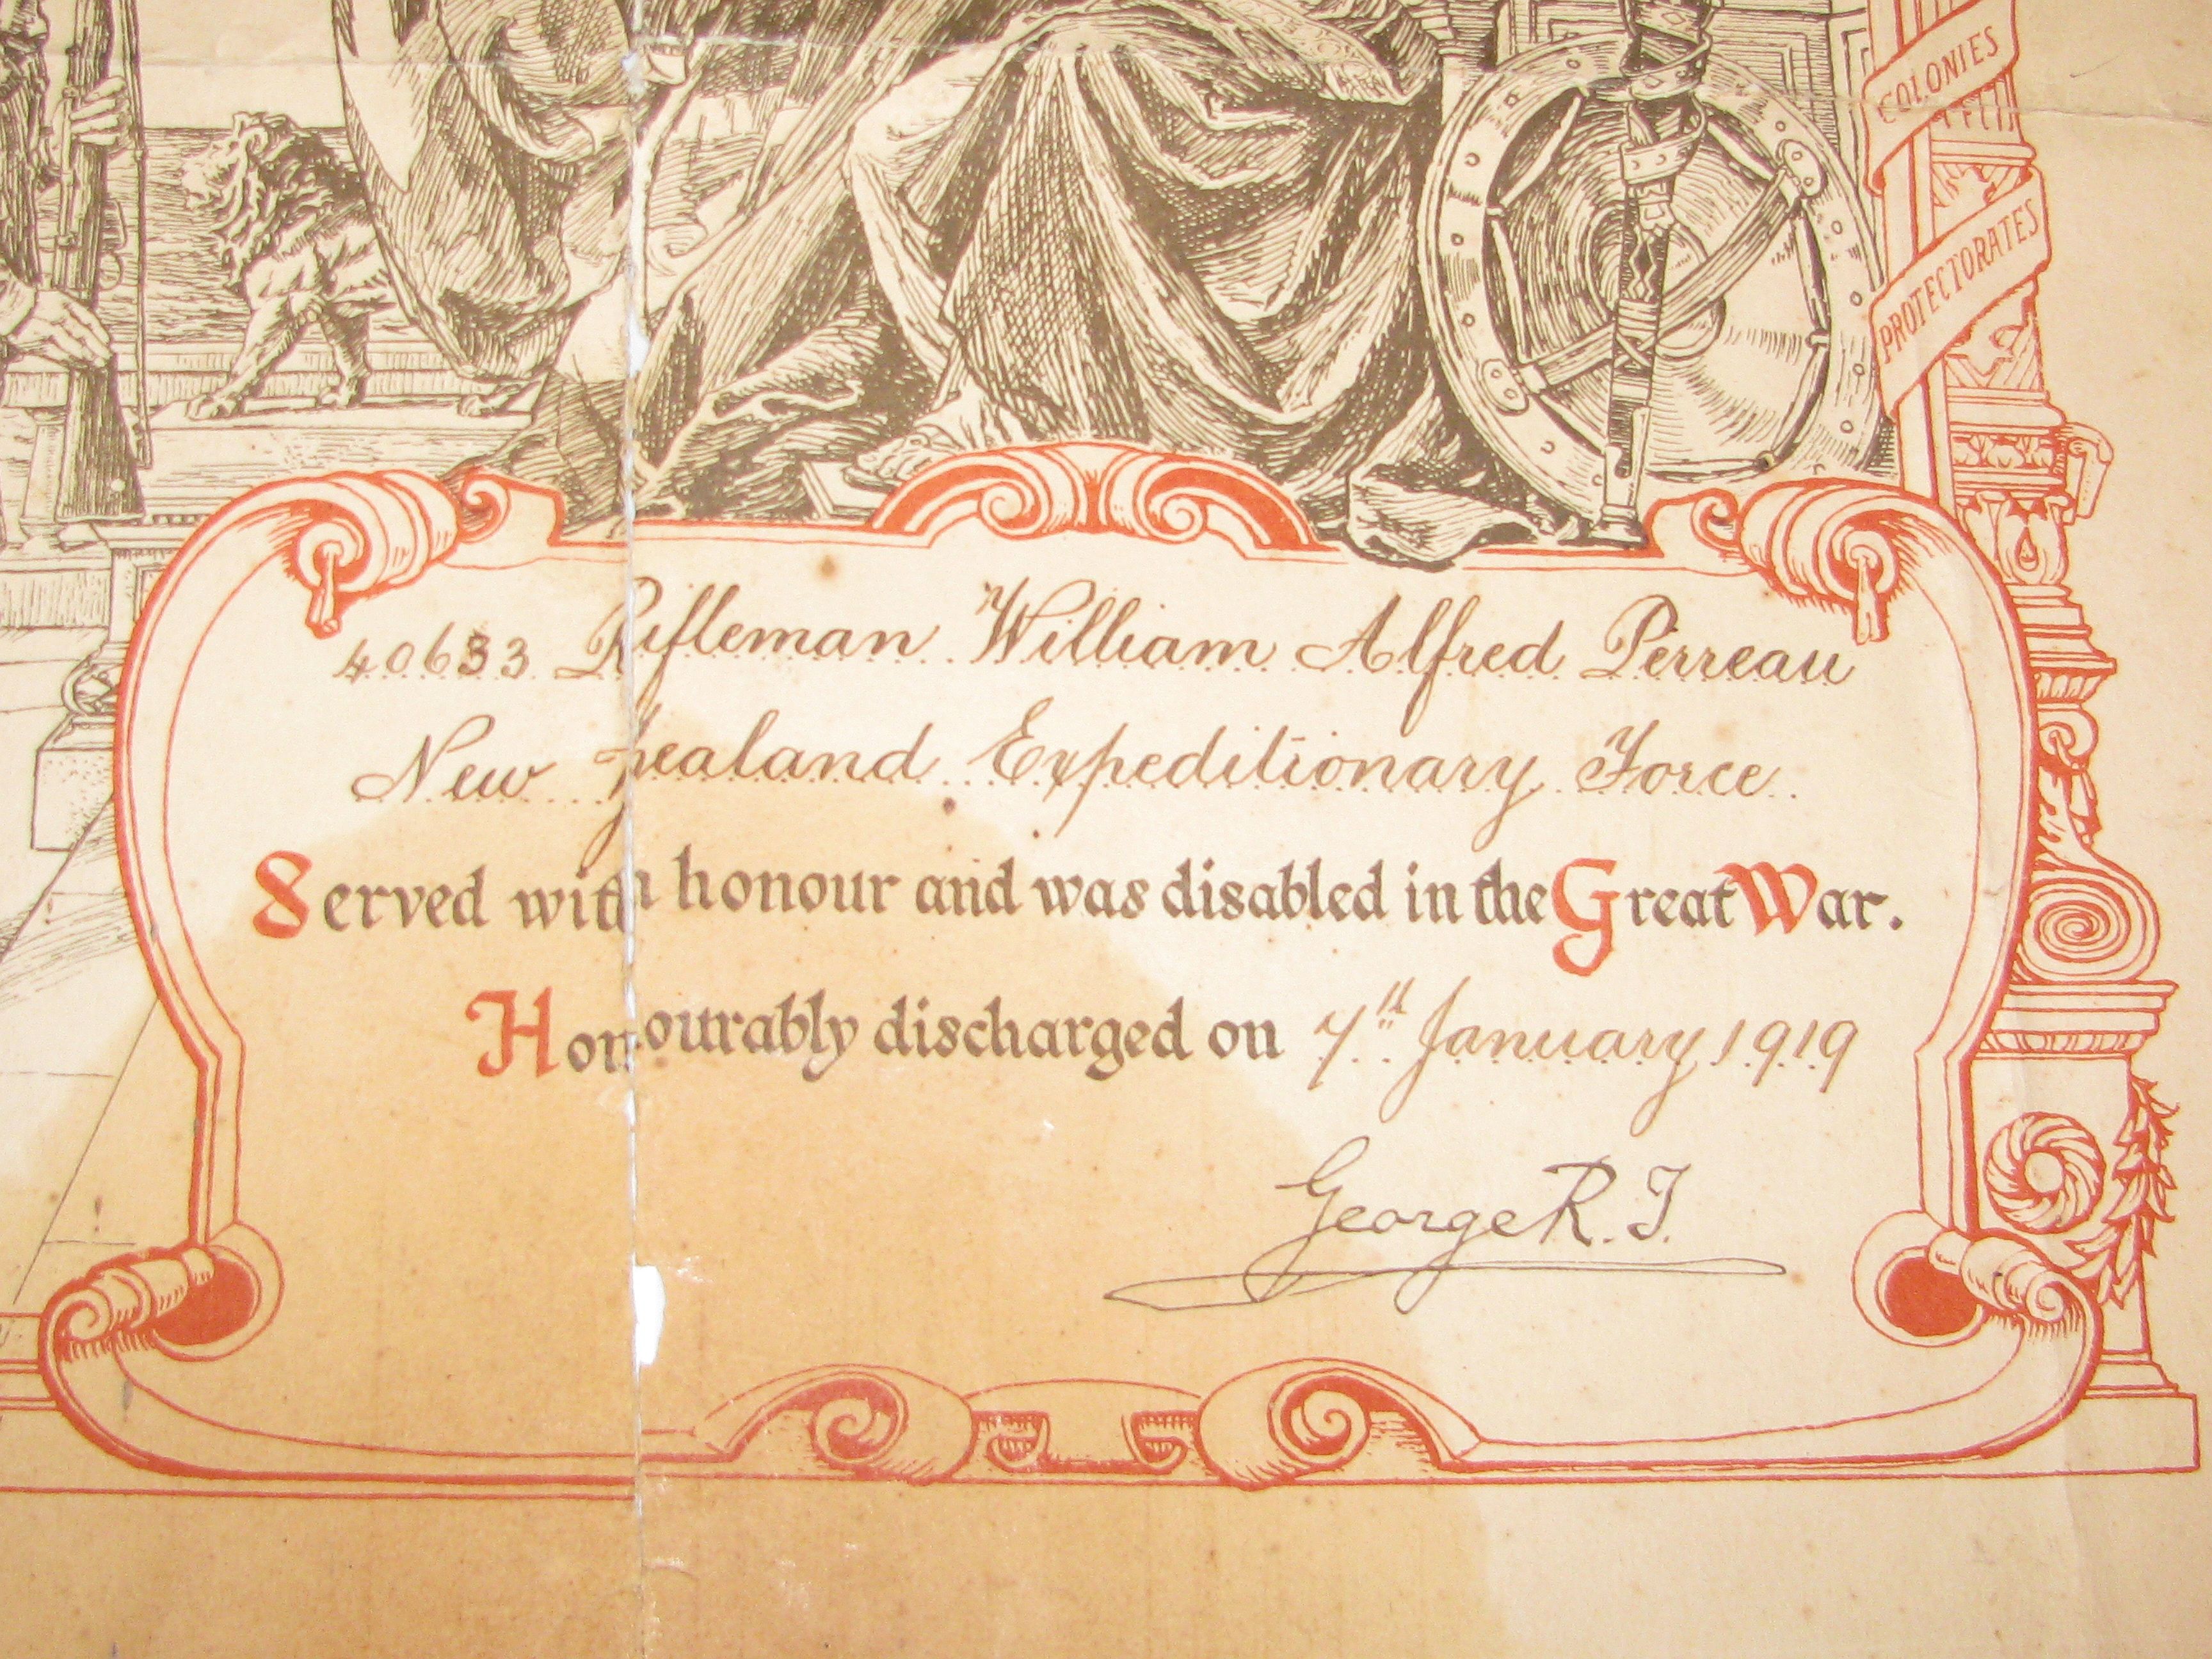 COLONIES
PROTECTORATES
40633 Rifleman William Alfred Perreau
New Zealand Expeditionary Force
Served with honour and was disabled in the Great War.
Honourably discharged on 7th January 1919
George R.I.